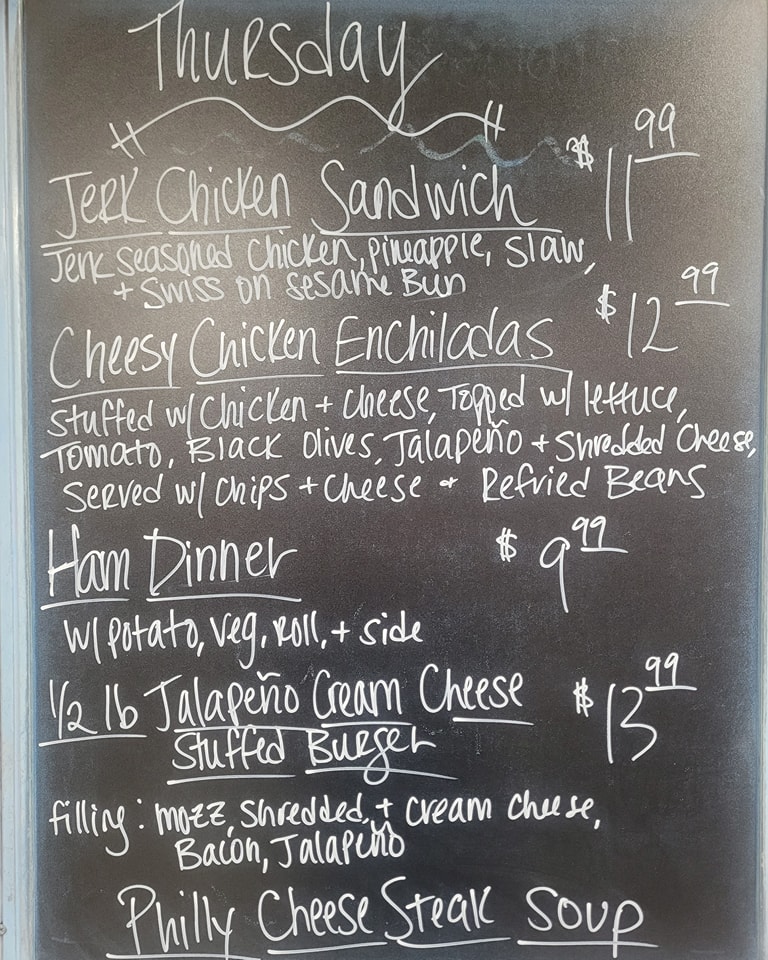 Thursday
Jerk Chicken Sandwich $11.99
Jerk seasoned chicken, pineapple, slaw,
+ swiss on sesame Bun
Cheesy Chicken Enchiladas $12.99
Stuffed w/ Chicken + Cheese, Topped w/ lettuce,
Tomato, Black Olives, Jalapeño + Shredded Cheese,
Served w/ chips + cheese + Refried Beans
Ham Dinner $9.99
w/ potato, veg, roll, + side
1/2 lb Jalapeño Cream Cheese $13.99
Stuffed Burger
filling: mozz, shredded, + cream cheese,
Bacon, Jalapeño
Philly Cheese Steak Soup